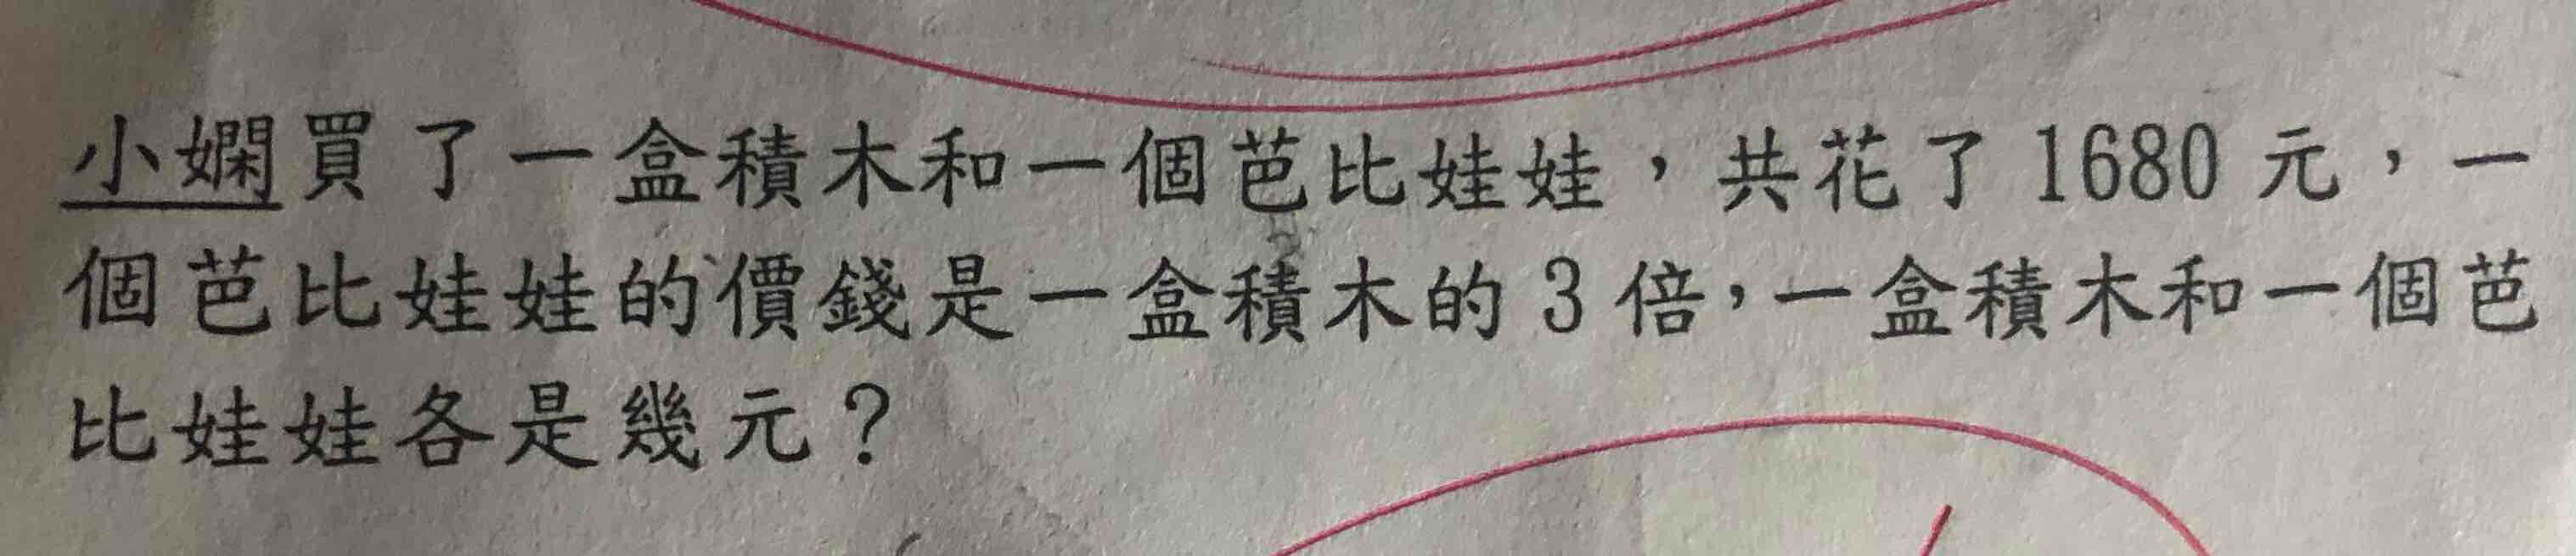 小嫻買了一盒積木和一個芭比娃娃，共花了 1680 元，一
個芭比娃娃的價錢是一盒積木的 3 倍，一盒積木和一個芭
比娃娃各是幾元？